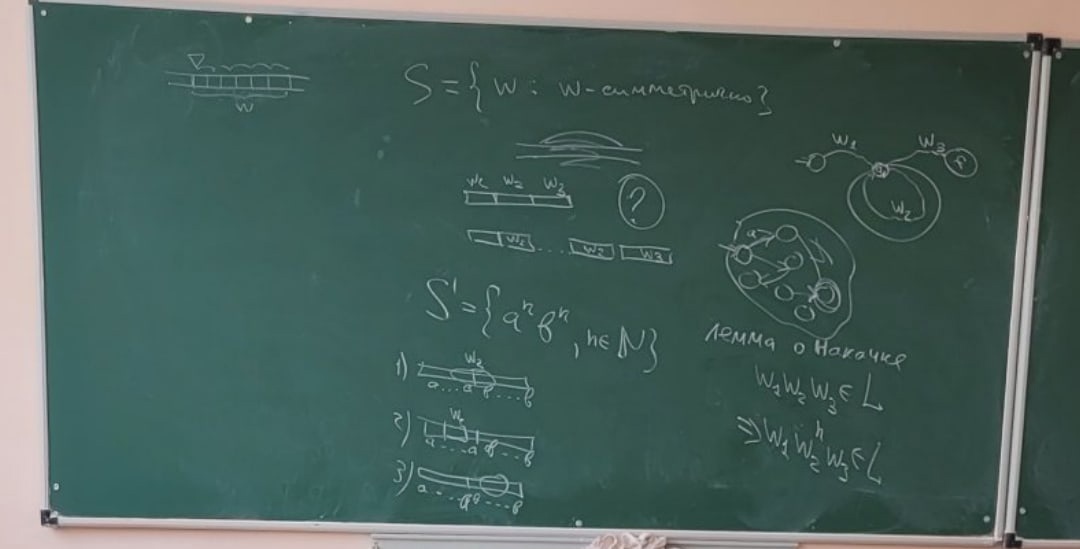 w
S = { w : w - симметрично }
w₁ w₂ w₃
?
w₂ .... w₂ w₃
S' = { aⁿ bⁿ , n ∈ N }
1) w₂
a...a b...b
2) w₂
a....a b...b
3)
a.... a b....b
w₁ w₃
w₂
a
Лемма о накачке
w₁ w₂ w₃ ∈ L
⇒ w₁ w₂ⁿ w₃ ∈ L